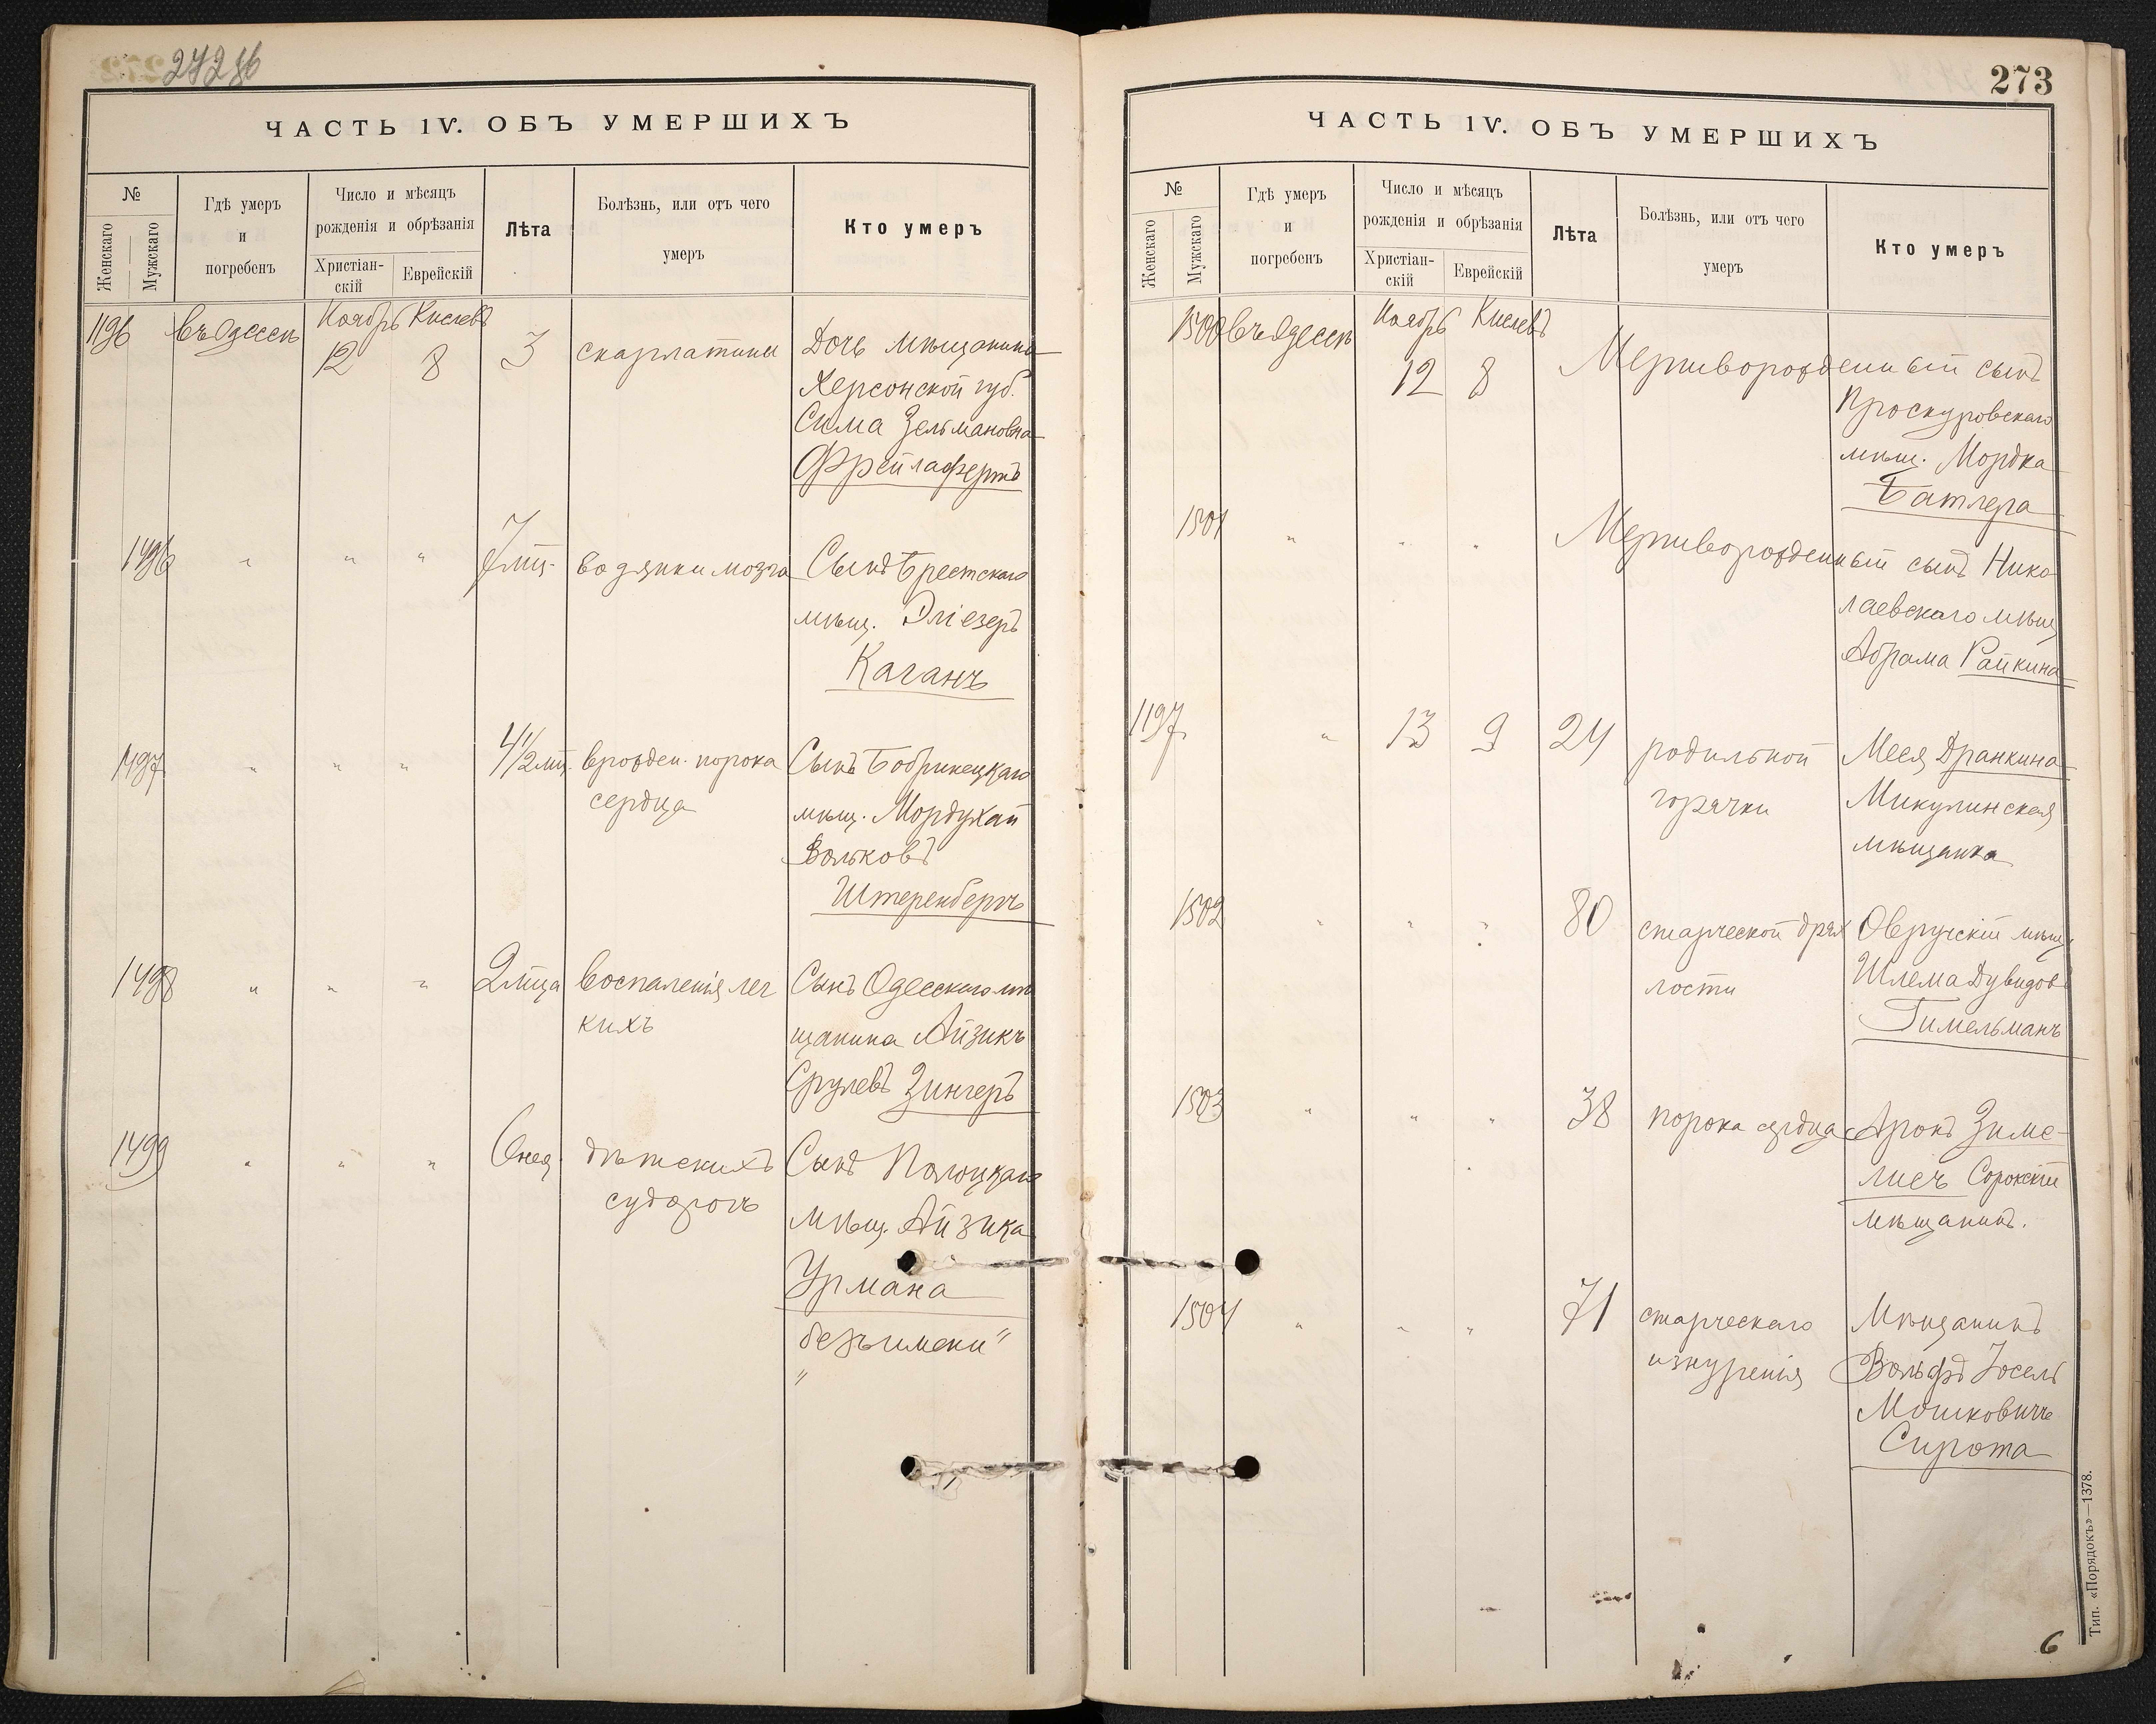 272 об
ЧАСТЬ IV. ОБЪ УМЕРШИХЪ
№
Женскаго
Мужскаго
Гдѣ умеръ
и
погребенъ
Число и мѣсяцъ
рожденія и обрѣзанія
Христіан-
скій
Еврейскій
Лѣта
Болѣзнь, или отъ чего
умеръ
Кто умеръ
1196 въ Одессѣ Ноябрь Кислевъ
12 8 3 скарлатины Дочь мѣщанина
Херсонской губ.
Сима Зельмановна
Фрейлафертъ
1496 " " " 7 мѣц. водянки мозга Сынъ Брестскаго
мѣщ. Эліезеръ
Каганъ
1497 " " " 4 1/2 мц. врожден. порока Сынъ Бобринецкаго
сердца мѣщ. Мордухай
Вольковъ
Штеренбергъ
1498 " " " 2 мца воспаленія лег Сынъ Одесскаго мѣ
кихъ щанина Айзикъ
Срулевъ Зингеръ
1499 " " " 6 нед. дѣтскихъ Сынъ Полоцкаго
судорогъ мѣщ. Айзика
Урмана
безъ имени "
"
273
ЧАСТЬ IV. ОБЪ УМЕРШИХЪ
№
Женскаго
Мужскаго
Гдѣ умеръ
и
погребенъ
Число и мѣсяцъ
рожденія и обрѣзанія
Христіан-
скій
Еврейскій
Лѣта
Болѣзнь, или отъ чего
умеръ
Кто умеръ
1500 въ Одессѣ Ноябрь Кислевъ
12 8 Мертворожденный сынъ
Проскуровскаго
мѣщ. Мордка
Батлера
1501 " " " Мертворожденный сынъ Нико
лаевскаго мѣщ
Абрама Райкина
1197 " 13 9 24 родильной Меся Дранкина
горячки Микулинская
мѣщанка
1502 " " " 80 старческой дрях Овручскій мѣщ.
лости Шлема Дувидовъ
Гимельманъ
1503 " " " 38 порока сердца Аронъ Зиме-
лисъ Сорокскій
мѣщанинъ.
1504 " " " 71 старческаго Мѣщанинъ
изнуренія Вольфъ Іосель
Мошковичъ
Сирота
Тип. «Порядокъ»—1378.
6